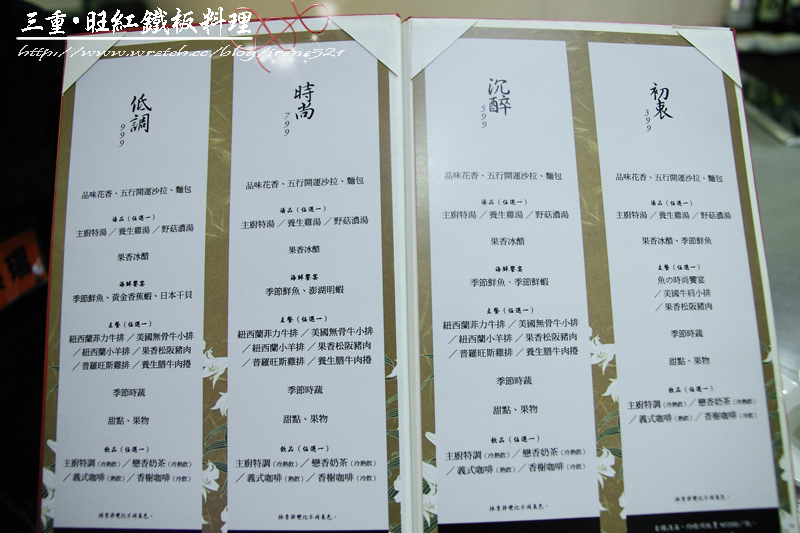 三重•旺紅鐵板料理
http://www.wretch.cc/blog/irene521
低調
999
品味花香、五行開運沙拉、麵包
湯品（任選一）
主廚特湯／養生雞湯／野菇濃湯
果香冰醋
海鮮饗宴
季節鮮魚、黃金香蕉蝦、日本干貝
主餐（任選一）
紐西蘭菲力牛排／美國無骨牛小排
／紐西蘭小羊排／果香松阪豬肉
／普羅旺斯雞排／養生膳牛肉捲
季節時蔬
甜點、果物
飲品（任選一）
主廚特調（冷熱飲）／戀香奶茶（冷熱飲）
／義式咖啡（熱飲）／香榭咖啡（冷飲）
依季節變化不同菜色。
時尚
799
品味花香、五行開運沙拉、麵包
湯品（任選一）
主廚特湯／養生雞湯／野菇濃湯
果香冰醋
海鮮饗宴
季節鮮魚、澎湖明蝦
主餐（任選一）
紐西蘭菲力牛排／美國無骨牛小排
／紐西蘭小羊排／果香松阪豬肉
／普羅旺斯雞排／養生膳牛肉捲
季節時蔬
甜點、果物
飲品（任選一）
主廚特調（冷熱飲）／戀香奶茶（冷熱飲）
／義式咖啡（熱飲）／香榭咖啡（冷飲）
依季節變化不同菜色。
沉醉
599
品味花香、五行開運沙拉、麵包
湯品（任選一）
主廚特湯／養生雞湯／野菇濃湯
果香冰醋
海鮮饗宴
季節鮮魚、季節鮮蝦
主餐（任選一）
紐西蘭菲力牛排／美國無骨牛小排
／紐西蘭小羊排／果香松阪豬肉
／普羅旺斯雞排／養生膳牛肉捲
季節時蔬
甜點、果物
飲品（任選一）
主廚特調（冷熱飲）／戀香奶茶（冷熱飲）
／義式咖啡（熱飲）／香榭咖啡（冷飲）
依季節變化不同菜色。
初衷
399
品味花香、五行開運沙拉、麵包
湯品（任選一）
主廚特湯／養生雞湯／野菇濃湯
果香冰醋、季節鮮魚
主餐（任選一）
魚の時尚饗宴
／美國牛肩小排
／果香松阪豬肉
季節時蔬
甜點、果物
飲品（任選一）
主廚特調（冷熱飲）／戀香奶茶（冷熱飲）
／義式咖啡（熱飲）／香榭咖啡（冷飲）
依季節變化不同菜色。